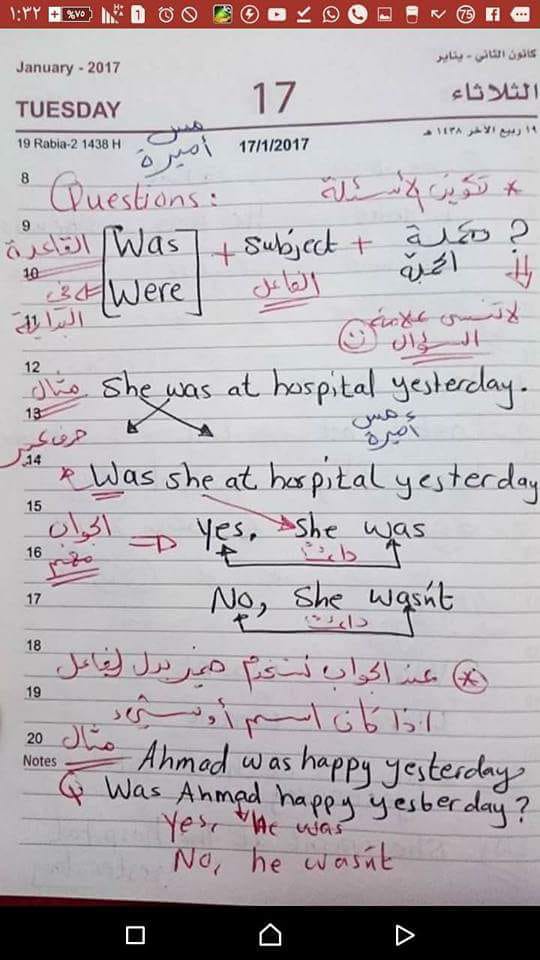 ١:٣٢ %٧٥ 75
كانون الثاني - يناير
January - 2017
TUESDAY 17 الثلاثاء
19 Rabia-2 1438 H 17/1/2017 ١٩ ربيع الآخر ١٤٣٨ هـ
مس
أميرة
8
Questions: * تكوين الأسئلة
9
القاعدة [Was + Subject + تكملة ?
10
Were] الفاعل الجملة
في
11
البداية
لا تنسى علامة
السؤال
12
مثال She was at hospital yesterday.
13
مس
أميرة
حرف كبير
14
* Was she at hospital yesterday
15
الجواب => Yes, She was
16
مختصر دائمًا
17
No, She wasn't
دائمًا
18
* عند الجواب نستخدم ضمير بدل الفاعل
19
اذا كان اسم أو شيء
20
مثال
Notes
Ahmad was happy yesterday
Q Was Ahmad happy yesberday?
Yes, He was
No, he wasn't